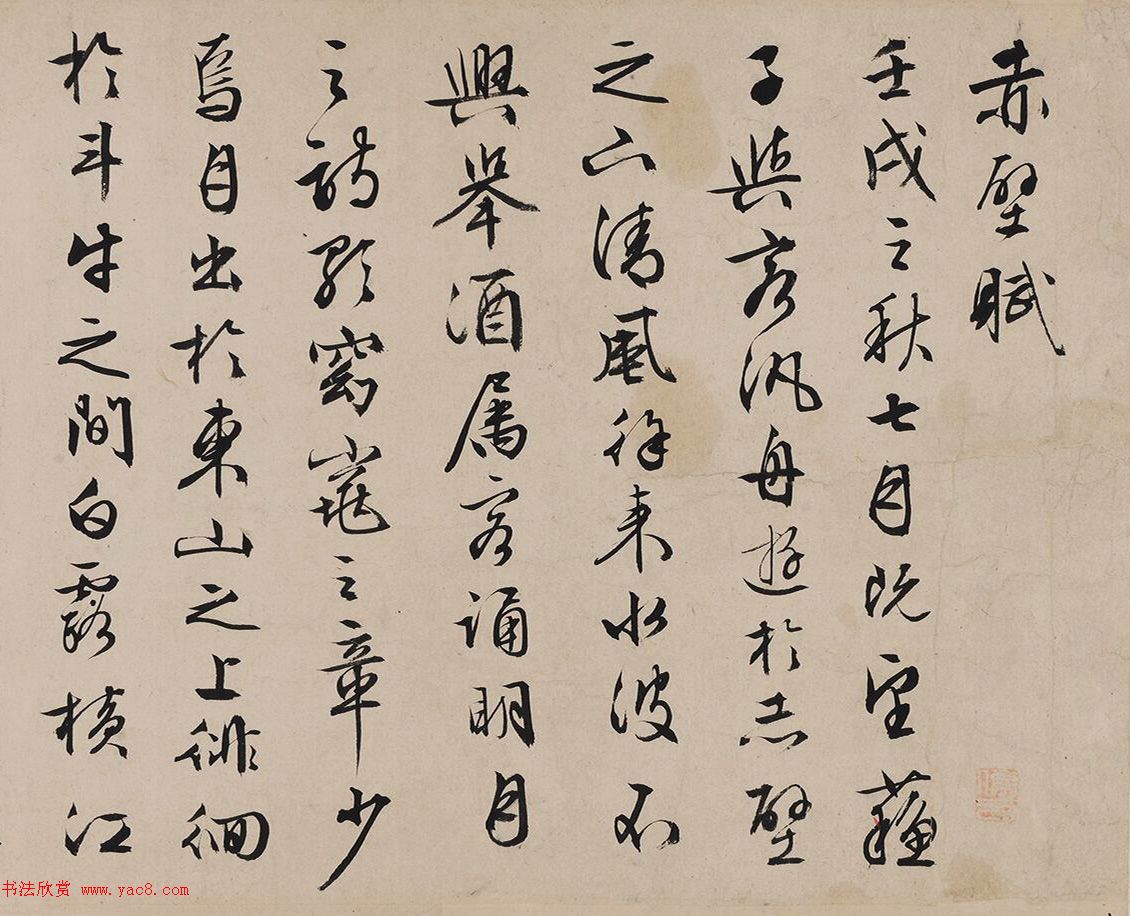 赤壁賦
壬戌之秋七月既望蘓
子與客汎舟遊於赤壁
之下清風徐来水波不
興舉酒属客誦明月
之詩歌窈窕之章少
焉月出於東山之上徘徊
於斗牛之間白露横江
书法欣赏 www.yac8.com